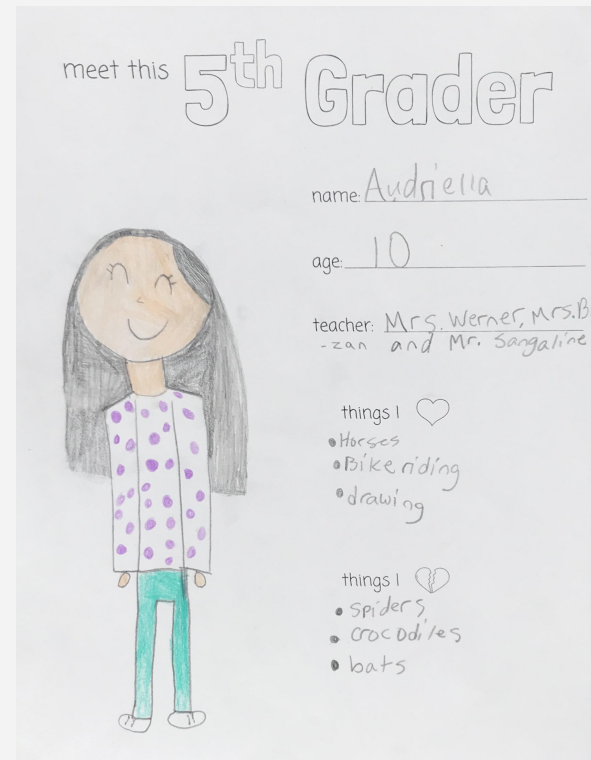 meet this 5th Grader
name: Audriella
age: 10
teacher: Mrs. Werner, Mrs.B
-zan and Mr. Sangaline
things I
• Horses
• Bike riding
• drawing
things I
• spiders
• crocodiles
• bats